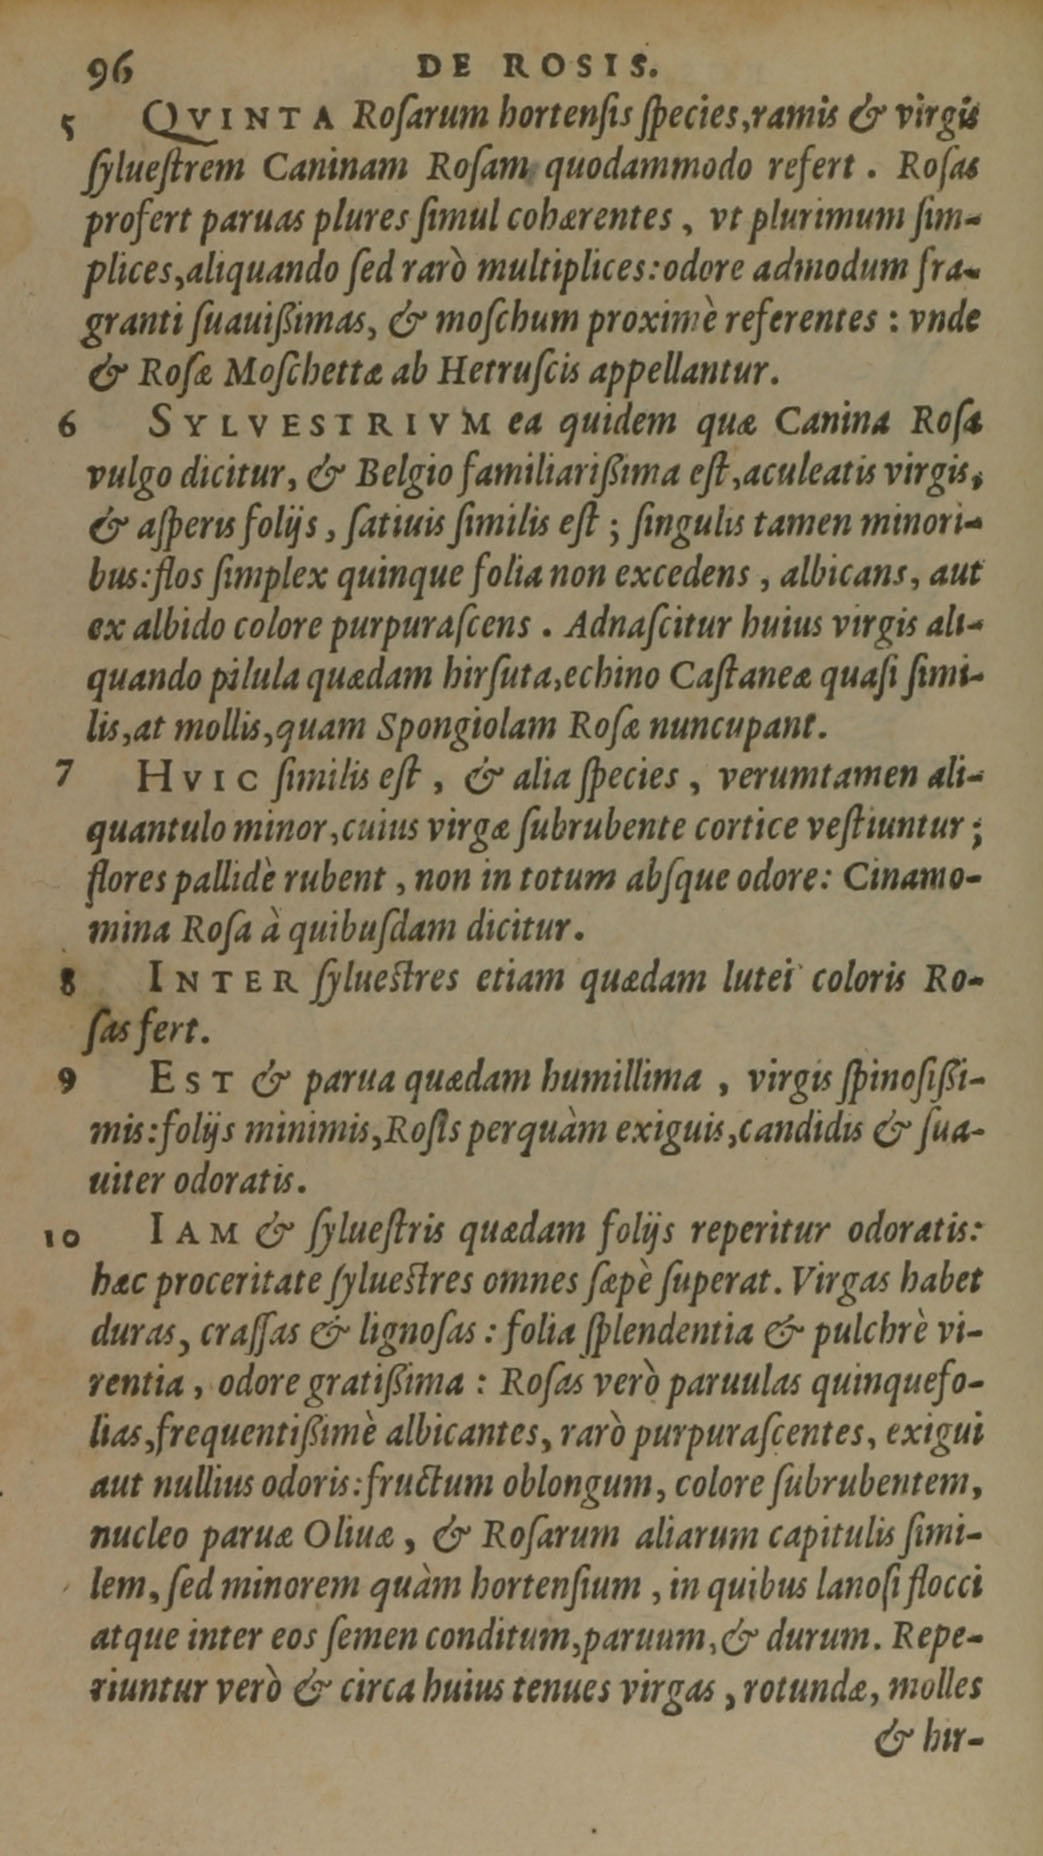 96 DE ROSIS.
5 QVINTA Roſarum hortenſis ſpecies, ramis & virgis
ſylueſtrem Caninam Roſam quodammodo refert. Roſas
profert paruas plures ſimul cohærentes, vt plurimum ſim-
plices, aliquando ſed rarò multiplices: odore admodum fra-
granti ſuauißimas, & moſchum proximè referentes: vnde
& Roſæ Moſchettæ ab Hetruſcis appellantur.
6 SYLVESTRIVM ea quidem quæ Canina Roſa
vulgo dicitur, & Belgio familiarißima eſt, aculeatis virgis,
& aſperis folijs, ſatiuis ſimilis eſt; ſingulis tamen minori-
bus: flos ſimplex quinque folia non excedens, albicans, aut
ex albido colore purpuraſcens. Adnaſcitur huius virgis ali-
quando pilula quædam hirſuta, echino Caſtaneæ quaſi ſimi-
lis, at mollis, quam Spongiolam Roſæ nuncupant.
7 HVIC ſimilis eſt, & alia ſpecies, verumtamen ali-
quantulo minor, cuius virgæ ſubrubente cortice veſtiuntur;
flores pallidè rubent, non in totum abſque odore: Cinamo-
mina Roſa à quibuſdam dicitur.
8 INTER ſylueſtres etiam quædam lutei coloris Ro-
ſas fert.
9 EST & parua quædam humillima, virgis ſpinoſißi-
mis: folijs minimis, Roſis perquàm exiguis, candidis & ſua-
uiter odoratis.
10 IAM & ſylueſtris quædam folijs reperitur odoratis:
hæc proceritate ſylueſtres omnes ſæpè ſuperat. Virgas habet
duras, craſſas & lignoſas: folia ſplendentia & pulchrè vi-
rentia, odore gratißima: Roſas verò paruulas quinquefo-
lias, frequentißimè albicantes, rarò purpuraſcentes, exigui
aut nullius odoris: fructum oblongum, colore ſubrubentem,
nucleo paruæ Oliuæ, & Roſarum aliarum capitulis ſimi-
lem, ſed minorem quàm hortenſium, in quibus lanoſi flocci
atque inter eos ſemen conditum, paruum, & durum. Repe-
riuntur verò & circa huius tenues virgas, rotundæ, molles
& hir-